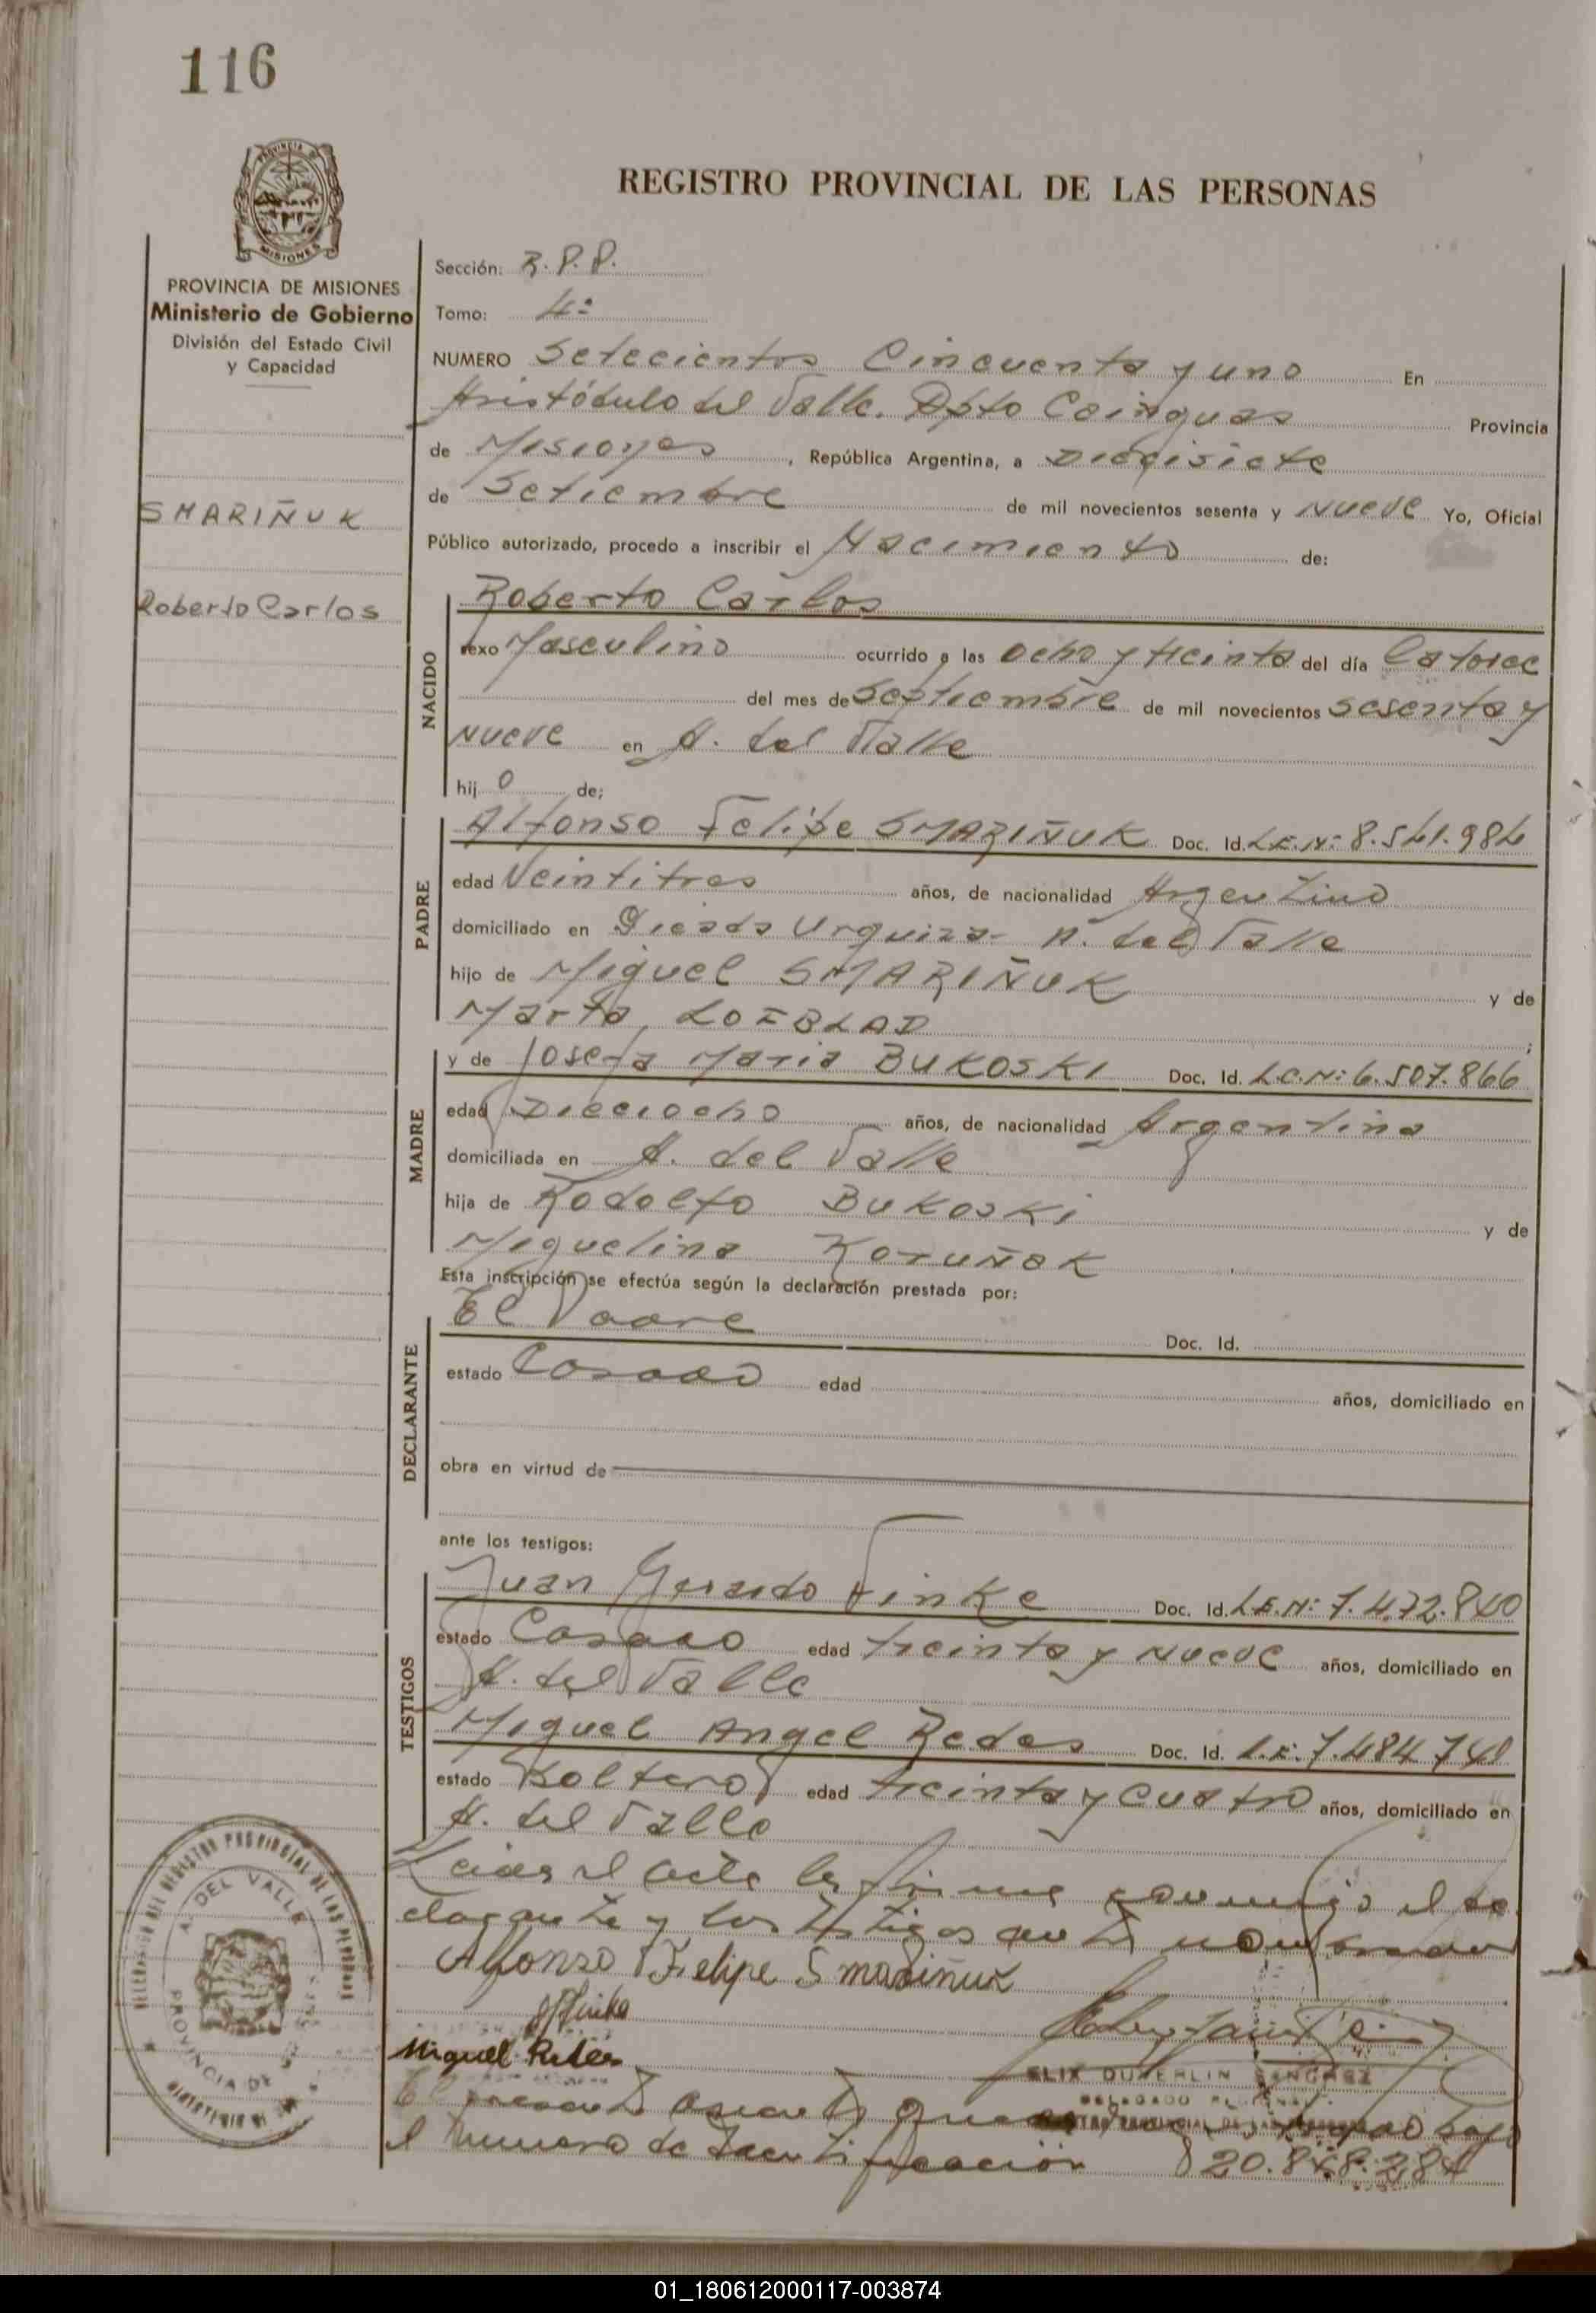 116
PROVINCIA DE
MISIONES
REGISTRO PROVINCIAL DE LAS PERSONAS
PROVINCIA DE MISIONES
Ministerio de Gobierno
División del Estado Civil
y Capacidad
SMARIÑUK
Roberto Carlos
Sección: R.P.P.
Tomo: 4º
NUMERO Setecientos Cincuenta y uno En
Aristóbulo del Valle. Dpto Cainguas Provincia
de Misiones, República Argentina, a Diecisiete
de Setiembre de mil novecientos sesenta y Nueve Yo, Oficial
Público autorizado, procedo a inscribir el Nacimiento de:
NACIDO
Roberto Carlos
sexo Masculino ocurrido a las Ocho y treinta del día Catorce
del mes de Septiembre de mil novecientos Sesenta y
Nueve en A. del Valle
hij o de;
PADRE
Alfonso Felipe SMARIÑUK Doc. Id. L.E.Nº 8.541.984
edad Veintitres años, de nacionalidad Argentino
domiciliado en Picada Urquiza- A. del Valle
hijo de Miguel SMARIÑUK y de
Marta LOFBLAD ;
MADRE
y de Josefa Maria BUKOSKI Doc. Id. L.C.Nº 6.507.866
edad Dieciocho años, de nacionalidad Argentina
domiciliada en A. del Valle
hija de Rodolfo BUKOSKI y de
Miguelina Koruñak
Esta inscripción se efectúa según la declaración prestada por:
DECLARANTE
El Padre Doc. Id.
estado Casado edad años, domiciliado en
obra en virtud de
ante los testigos:
TESTIGOS
Juan Gerardo Finke Doc. Id. L.E.Nº 7.472.840
estado Casado edad treinta y Nueve años, domiciliado en
A. del Valle
Miguel Angel Redes Doc. Id. L.E. 7.484.740
estado Soltero edad treinta y Cuatro años, domiciliado en
A. del Valle
Leida el acta la firma conmigo el de
clarante y los testigos
Alfonso Felipe Smariñuk
Miguel
ELIX DUVERLIN SANCHEZ
DELEGADO
PROVINCIAL DE LAS
El presente bajo
el Numero de Identificación 20.848.284
DELEGACION DEL REGISTRO PROVINCIAL DE LAS PERSONAS
A. DEL VALLE
PROVINCIA DE
01_180612000117-003874